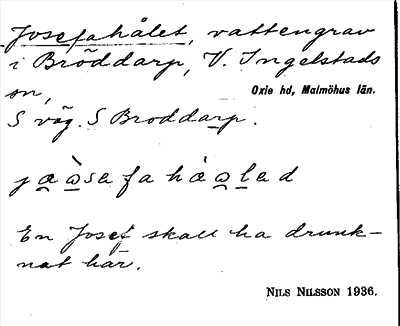 Josefahålet, vattengrav
i Bröddarp, V. Ingelstads
sn, Oxie hd, Malmöhus län.
S väg. S Broddarp.
En Josef skall ha drunk-
nat här.
NILS NILSSON 1936.